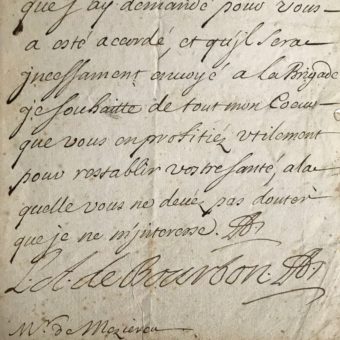 que j'ay demandé pour vous
a esté acordé et qu'il sera
jncessament envoyé a la Brigade
je souhaitte de tout mon Coeur
que vous en profitiez vtilement
pour restablir vostre santé, a la
quelle vous ne devez pas douter
que je ne m'interesse.
L. A. de Bourbon.
Mr. de Mezieres